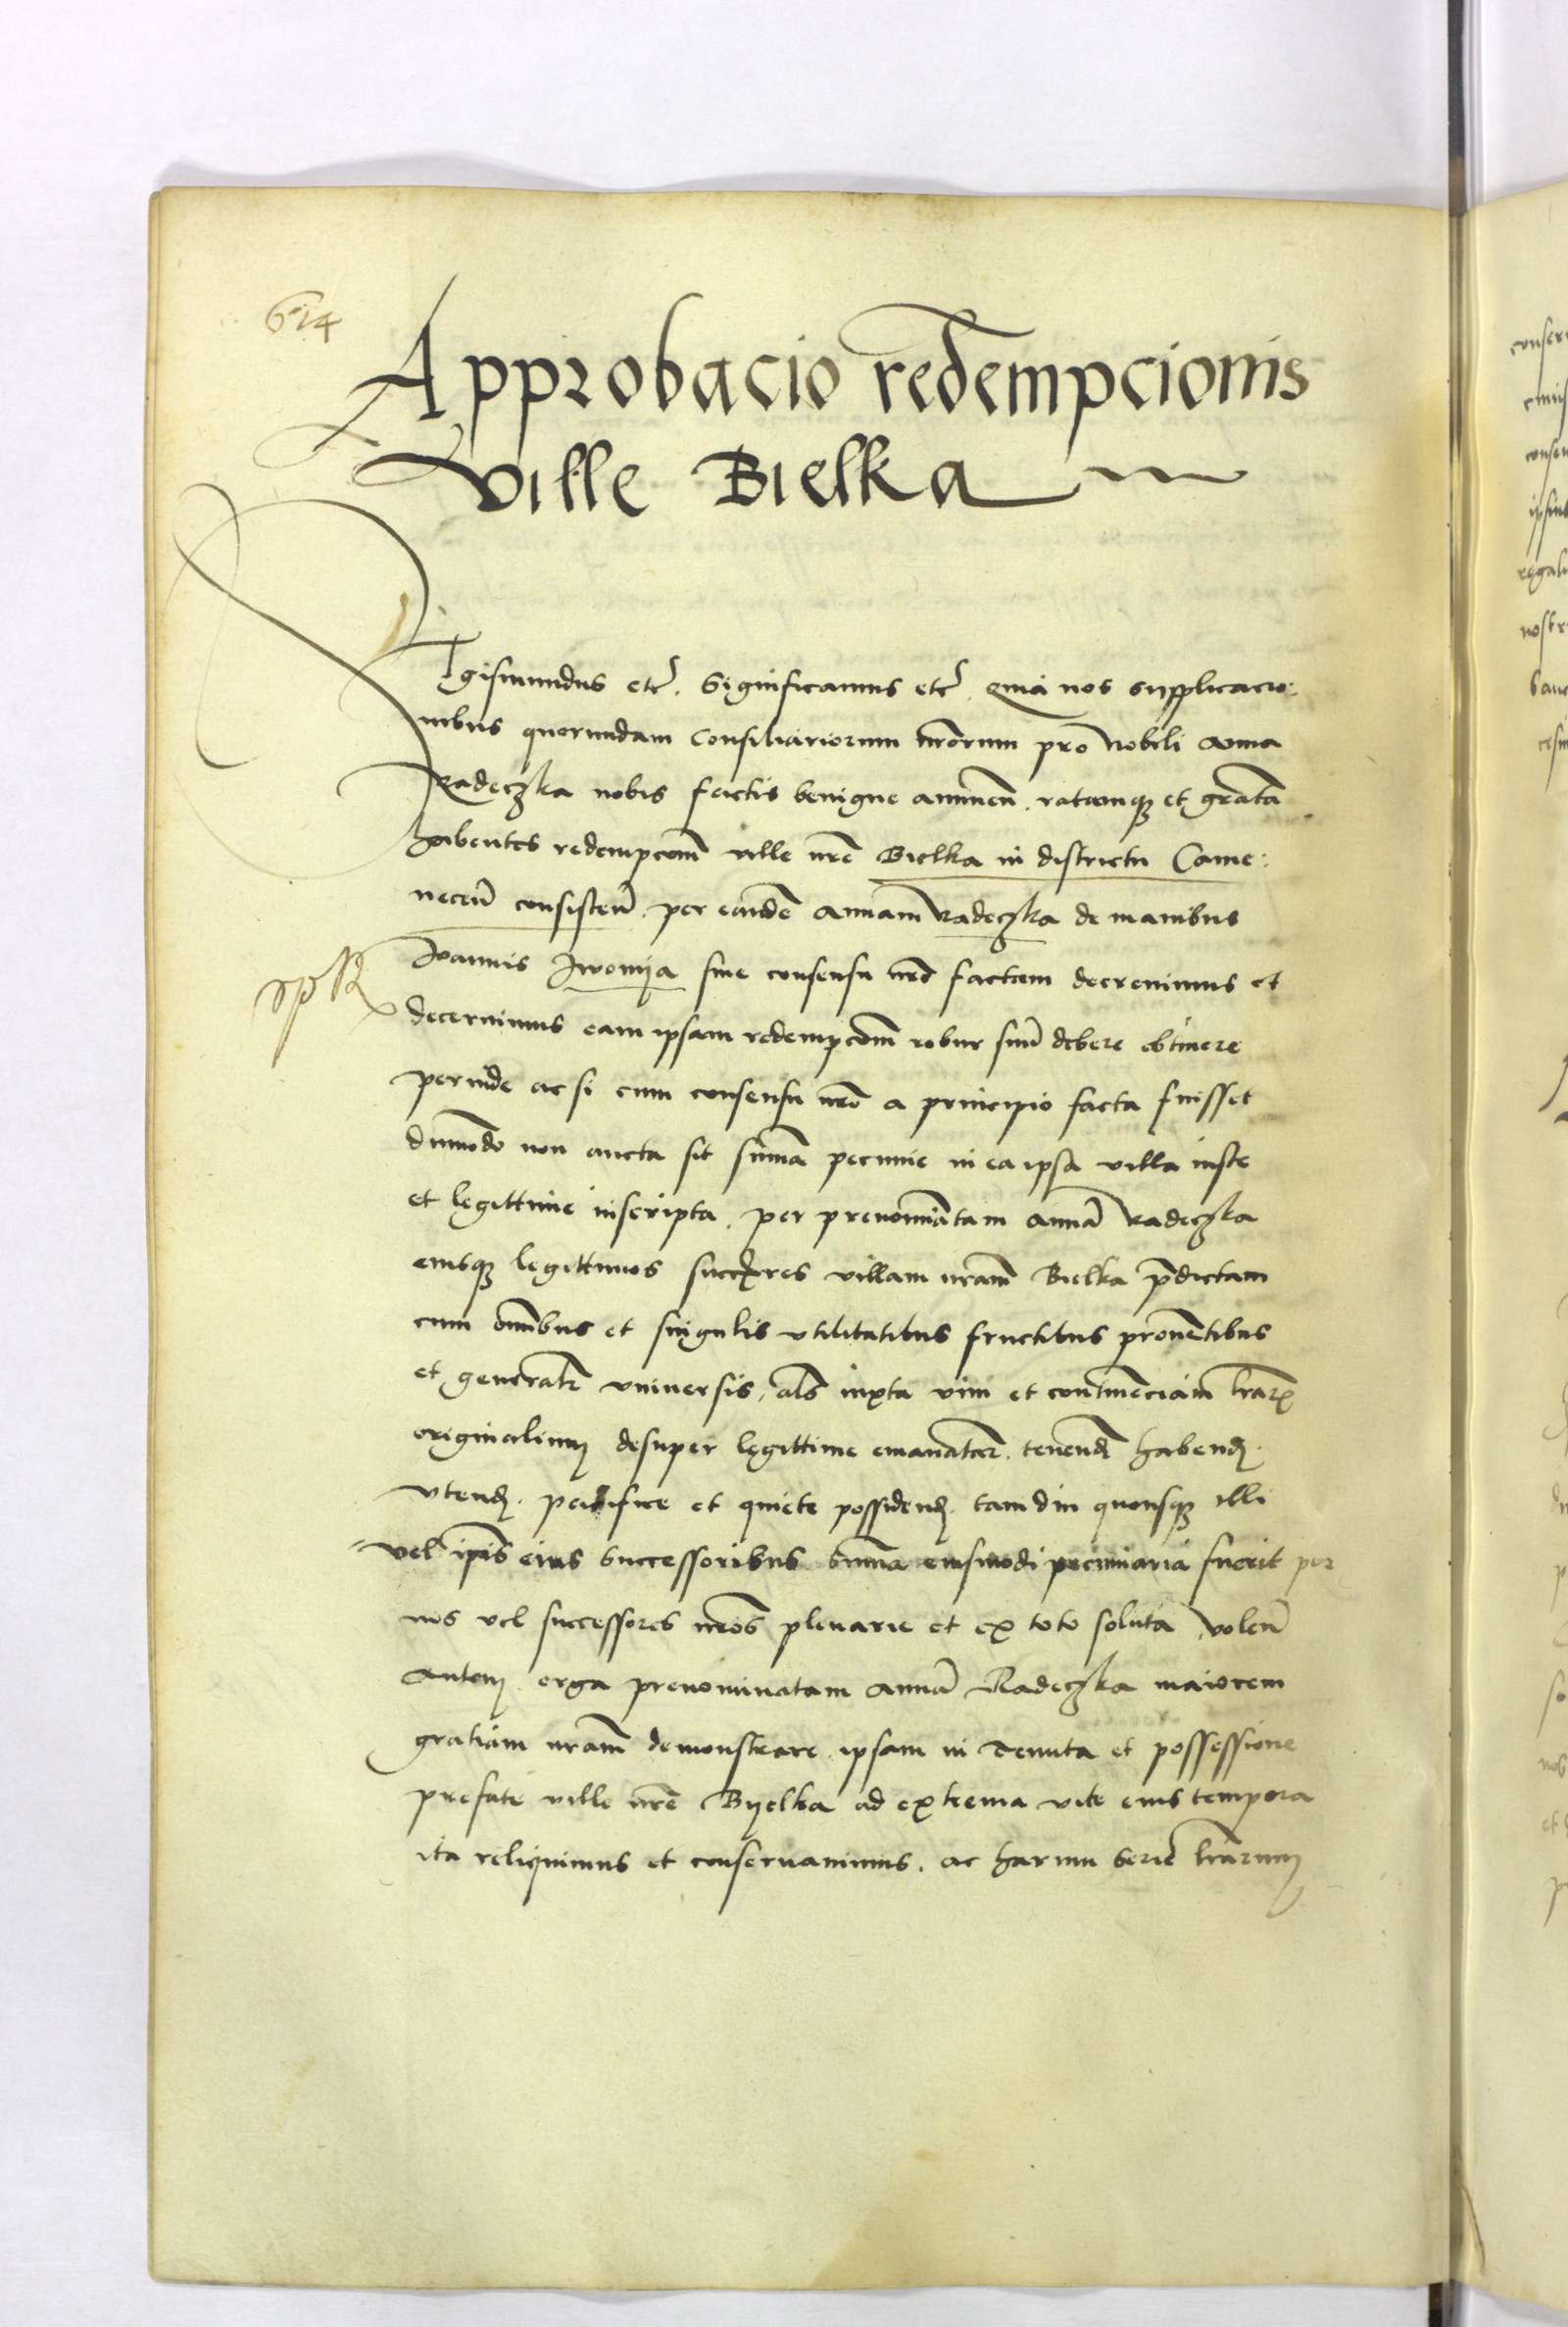 614
Approbacio redempcionis
ville Bielka
Sigismundus etc̃. Significamus etc̃. Quia nos supplicacio:
nibus quorundam Consiliariorum nr̃orum pro Nobili Anna
Radeczka nobis factis benigne annuen̄. ratamq; et gratā
habentes redempcom̄ ville nr̃e Bielka in districtu Came:
necen̄ consisten̄. per eandē Annam Radeczka de manibus
Joannis Iwonija sine consensu nr̃o factam decrevimus et
decernimus eam ipsam redempcom̄ robur suū debere obtinere
perinde ac si cum consensu nr̃o a principio facta fuisset
dummōdo non aucta sit summa pecunie in ea ipsa villa iuste
et legittime inscripta. per prenominātam Annā Radeczka
eiusq; legittimos succ̄res villam nr̃am Bielka p̄dictam
cum om̄ibus et singulis vtilitatibus fructibus provētibus
et generalr̄ vniversis, als̄ iuxta vim et continēciam lr̄arꝫ
originalium desuper legittime emanatar̄. tenend̄ habend̄.
vtend̄. pacifice et quiete possidend̄. tam diu quousq; illi
vel ip̄is eius successoribus summa eiusmodi pecuniaria fuerit per
nos vel successores nr̃os plenarie et ex toto soluta, volen̄
Autem erga prenominatam Annā Radeczka maiorem
gratiam nr̃am demonstrare. ipsam in Tenuta et possessione
prefate ville nr̃e Byelka ad extrema vite eius tempora
ita reliquimus et conservamus. ac harum serie lr̄arum